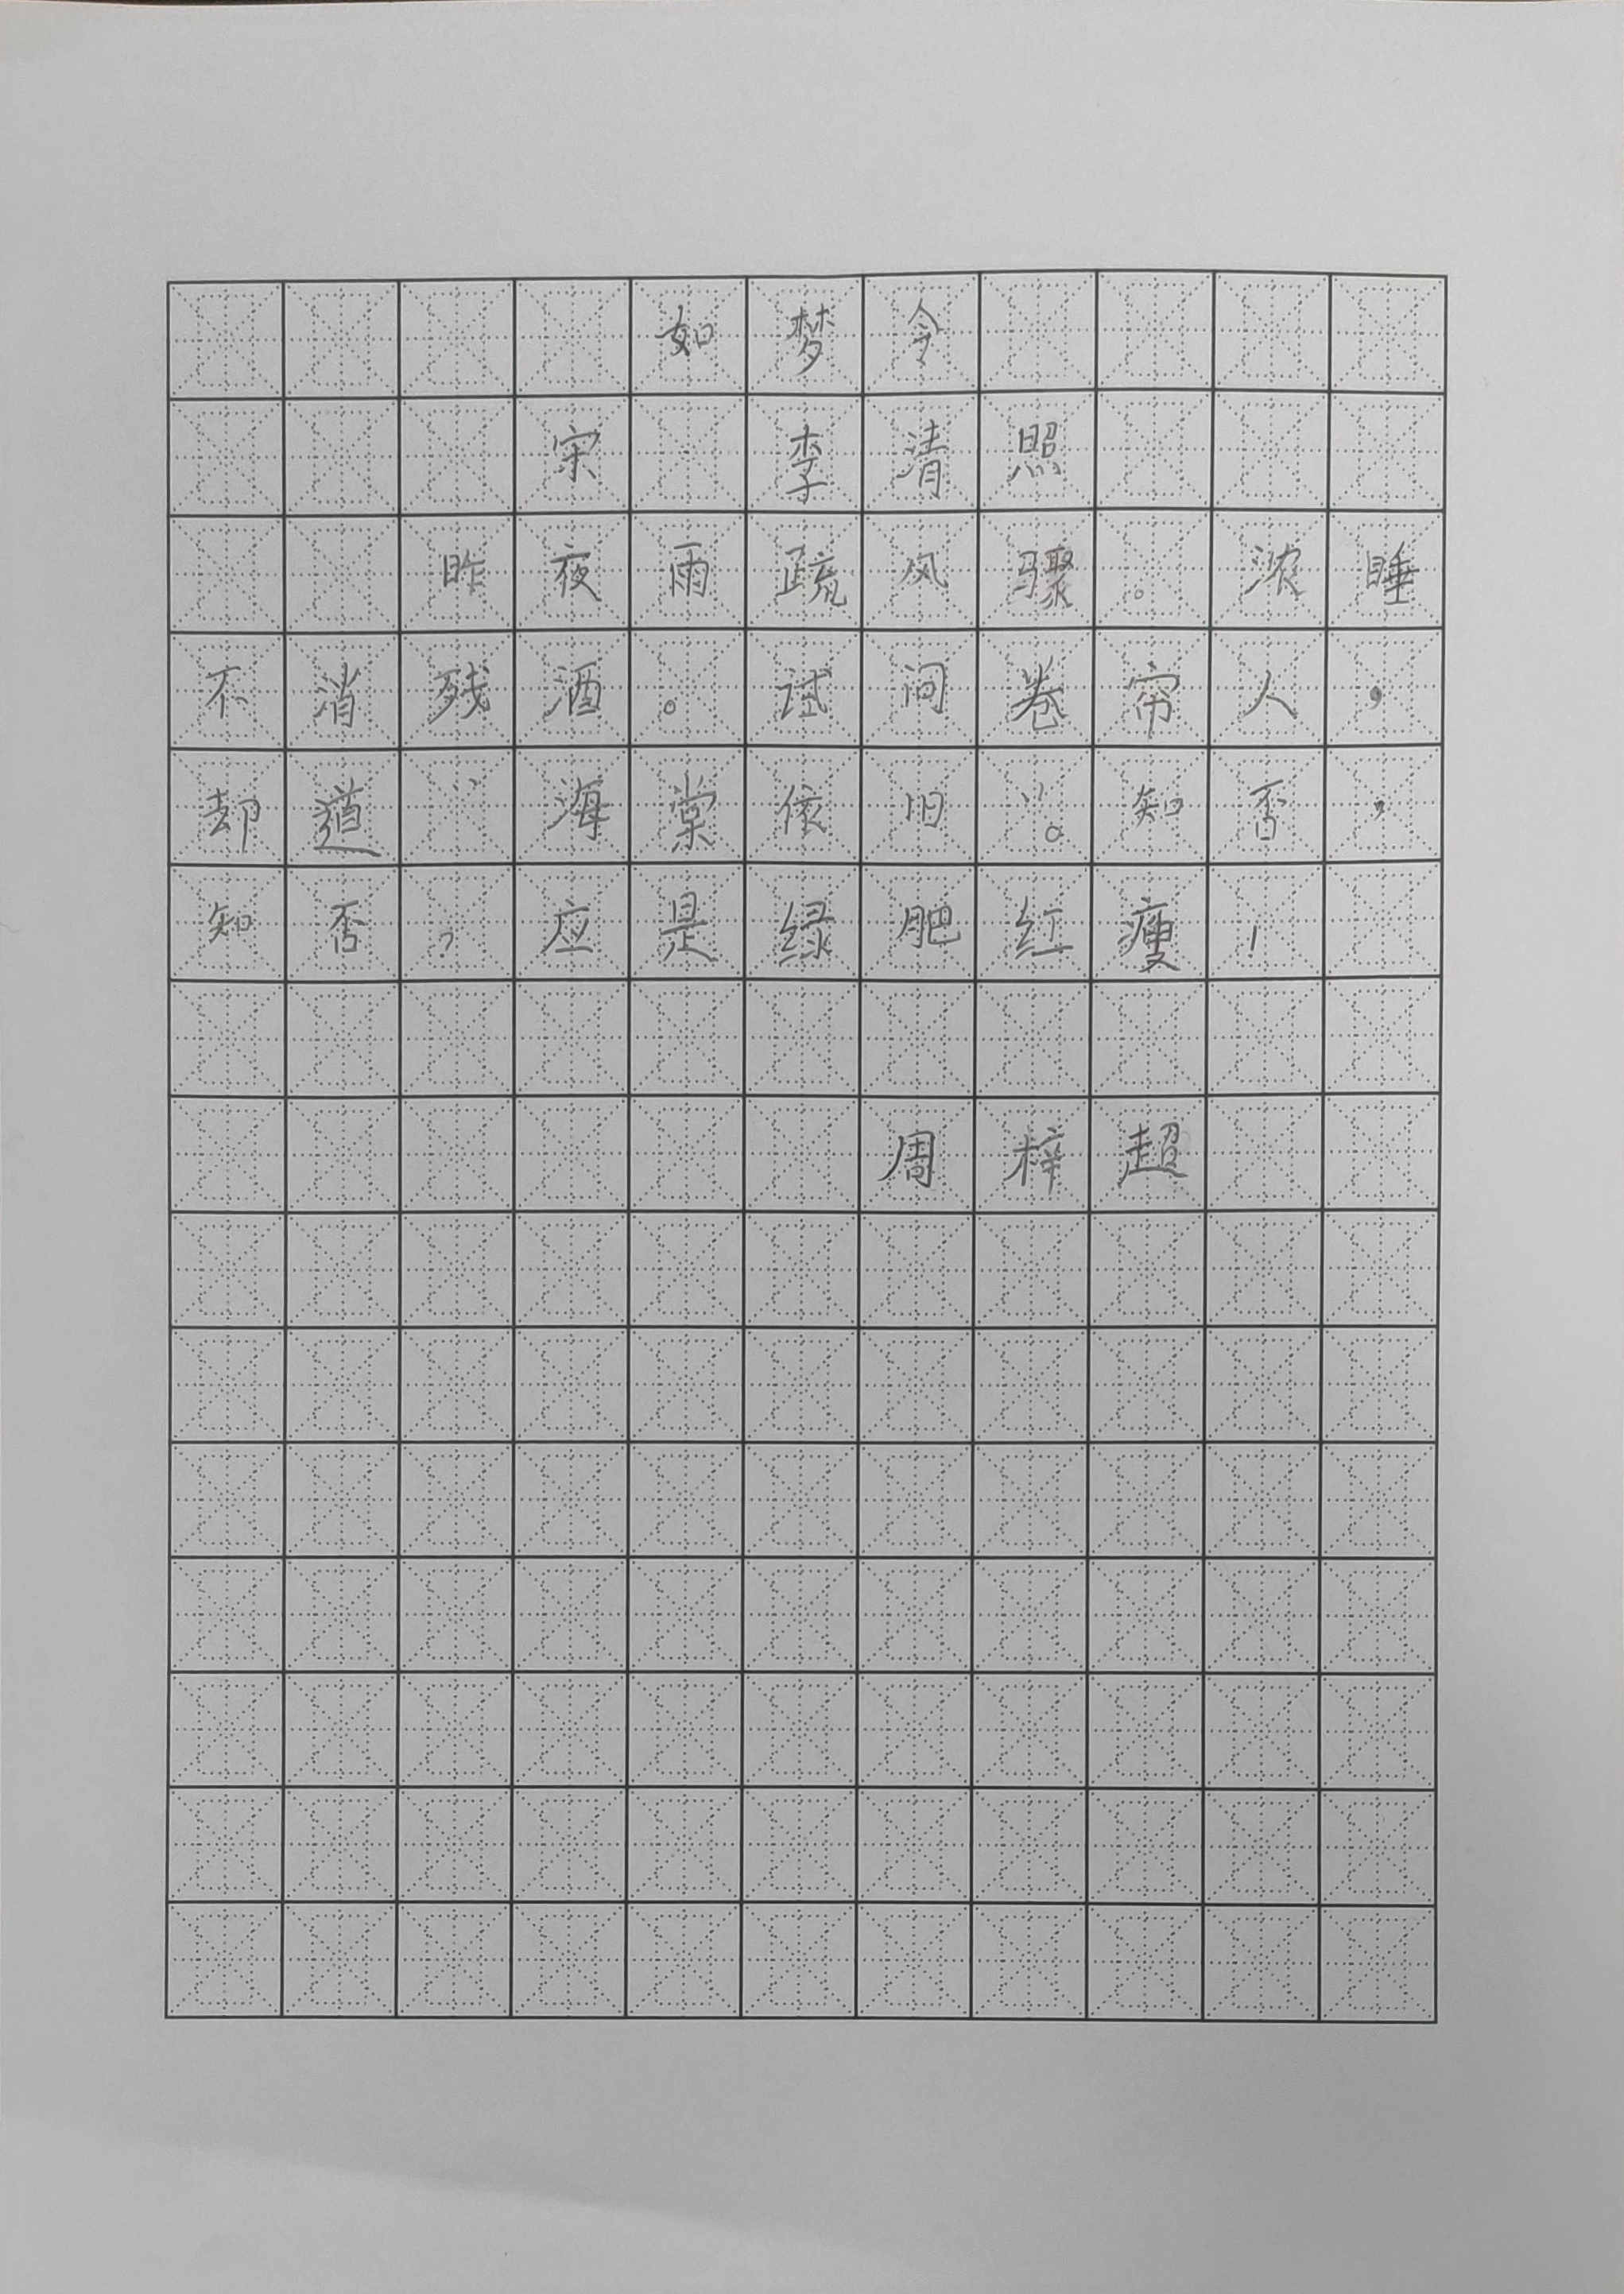 如梦令
宋 李清照
昨夜雨疏风骤。浓睡
不消残酒。试问卷帘人，
却道“海棠依旧”。知否，
知否？应是绿肥红瘦！
周梓超